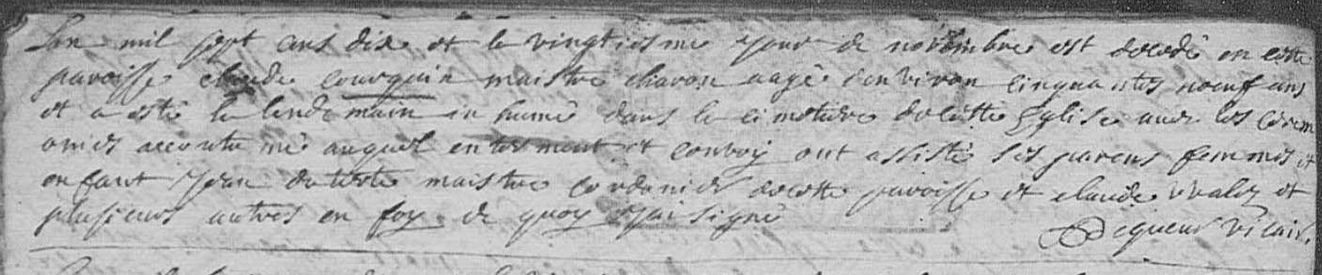 Lan mil sept cens dix et le vingtiesme jour de novembre est decedé en cette
paroisse claude courquin maistre charon aagé denviron cinquantes noeuf ans
et a esté le lendemain inhumé dans le cimetiere de cette Eglise avec les cerem
onies accoutumé auquel enterment et convoy ont assisté ses parens femmes et
enfant Jean maistre cordonier de cette paroisse et claude et
plusieurs autres en foy de quoy Jai signé
Vicair.